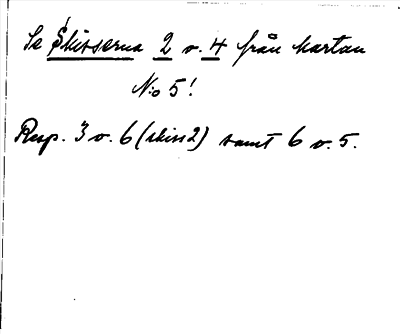 Se Skisserna 2 o. 4 från kartan
No 5!
Resp. 3 o. 6 (skiss 2) samt 6 o. 5.